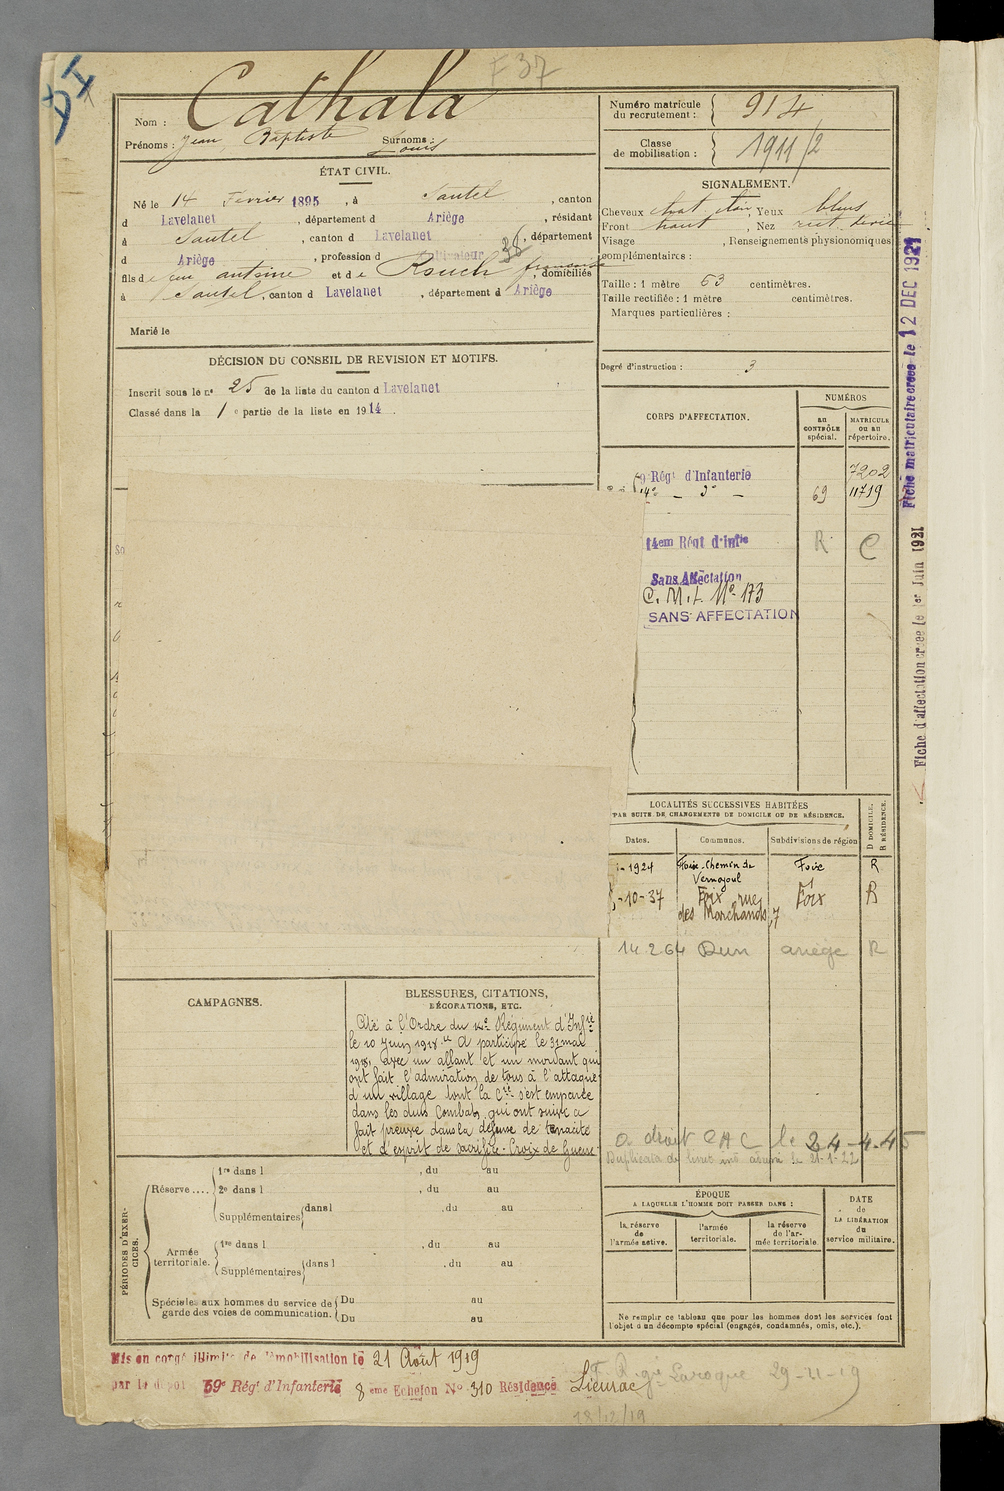 F 37
Nom : Cathala
Prénoms : Jean Baptiste Surnoms : Louis
ÉTAT CIVIL.
Né le 14 Février 1895, à Sautel, canton
d Lavelanet, département d Ariège, résidant
à Sautel, canton d Lavelanet, département
d Ariège, profession d Cultivateur 38
fils de Jean antoine et de Rouch françoise, domiciliés
à Sautel, canton d Lavelanet, département d Ariège
Marié le
DÉCISION DU CONSEIL DE REVISION ET MOTIFS.
Inscrit sous le n° 25 de la liste du canton d Lavelanet
Classé dans la 1e partie de la liste en 1914.
Numéro matricule du recrutement : 914
Classe de mobilisation : 1911/2
SIGNALEMENT.
Cheveux chat clair, Yeux bleus
Front haut, Nez rect.
Visage , Renseignements physionomiques
complémentaires :
Taille : 1 mètre 63 centimètres.
Taille rectifiée : 1 mètre centimètres.
Marques particulières :
Degré d'instruction : 3
CORPS D'AFFECTATION.
NUMÉROS
au CONTRÔLE spécial.
MATRICULE ou au répertoire.
9e Régt d'Infanterie 7202
14e — do — 69 11719
14em Régt d'Infie R C
Sans Affectation
C. M. I. No 173
SANS AFFECTATION
LOCALITÉS SUCCESSIVES HABITÉES
PAR SUITE DE CHANGEMENTS DE DOMICILE OU DE RÉSIDENCE.
Dates. Communes. Subdivisions de région
D DOMICILE. R RÉSIDENCE.
-1924 Foix, Chemin de Vernajoul Foix R
-10-37 Foix, rue des Marchands, 7 Foix R
14 2 64 Dun ariège R
a droit CAC le 24-4.45
Duplicata de livret ind. le 21-1-22
CAMPAGNES.
BLESSURES, CITATIONS,
DÉCORATIONS, ETC.
Cité à l'Ordre du 14e Régiment d'Infie
le 10 Juin 1918. A participé le 31 mai
1918, avec un allant et un mordant qui
ont fait l'admiration de tous à l'attaque
d'un village dont la Cie s'est emparée
dans les durs Combats qui ont suivi a
fait preuve dans la défense de tenacité
et d'esprit de sacrifice. Croix de Guerre
PÉRIODES D'EXERCICES.
Réserve....
1re dans l , du au
2e dans l , du au
Supplémentaires dans l , du au
Armée territoriale.
1re dans l , du au
Supplémentaires dans l , du au
Spéciales aux hommes du service de garde des voies de communication.
Du au
Du au
ÉPOQUE
A LAQUELLE L'HOMME DOIT PASSER DANS :
la réserve de l'armée active.
l'armée territoriale.
la réserve de l'armée territoriale.
DATE de LA LIBÉRATION du service militaire.
Ne remplir ce tableau que pour les hommes dont les services font
l'objet d'un décompte spécial (engagés, condamnés, omis, etc.).
Mis en congé illimité de démobilisation le 21 Août 1919
par le dépôt 59e Régt d'Infanterie 8eme Echelon No 310 Résidence Lieurac
Laroque 29-11-19
18/12/19
Fiche matriculaire créée le 12 DEC 1921
Fiche d'affectation créée le 1er Juin 1921